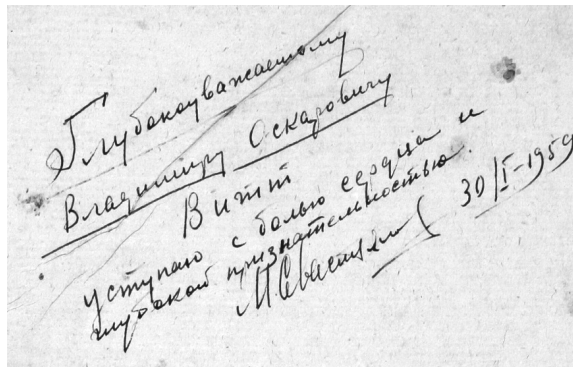 Глубокоуважаемому
Владимиру Оскаровичу
Витт
уступаю с болью сердца и
глубокой признательностью.
30/I-1959